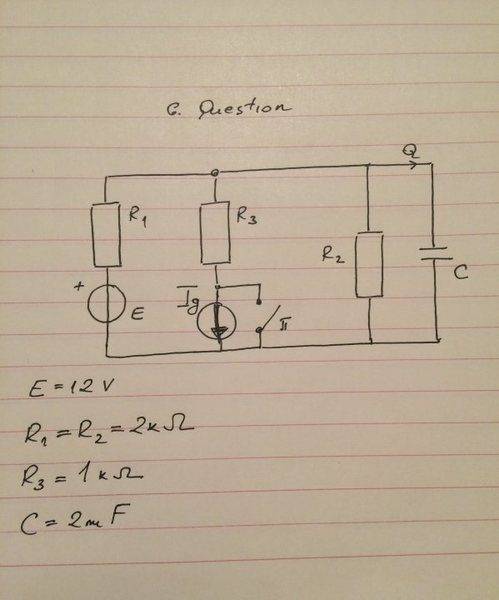 6. Question
Q
R1
R3
R2
C
+
E
Ig
π
E = 12 V
R1 = R2 = 2kΩ
R3 = 1kΩ
C = 2mF